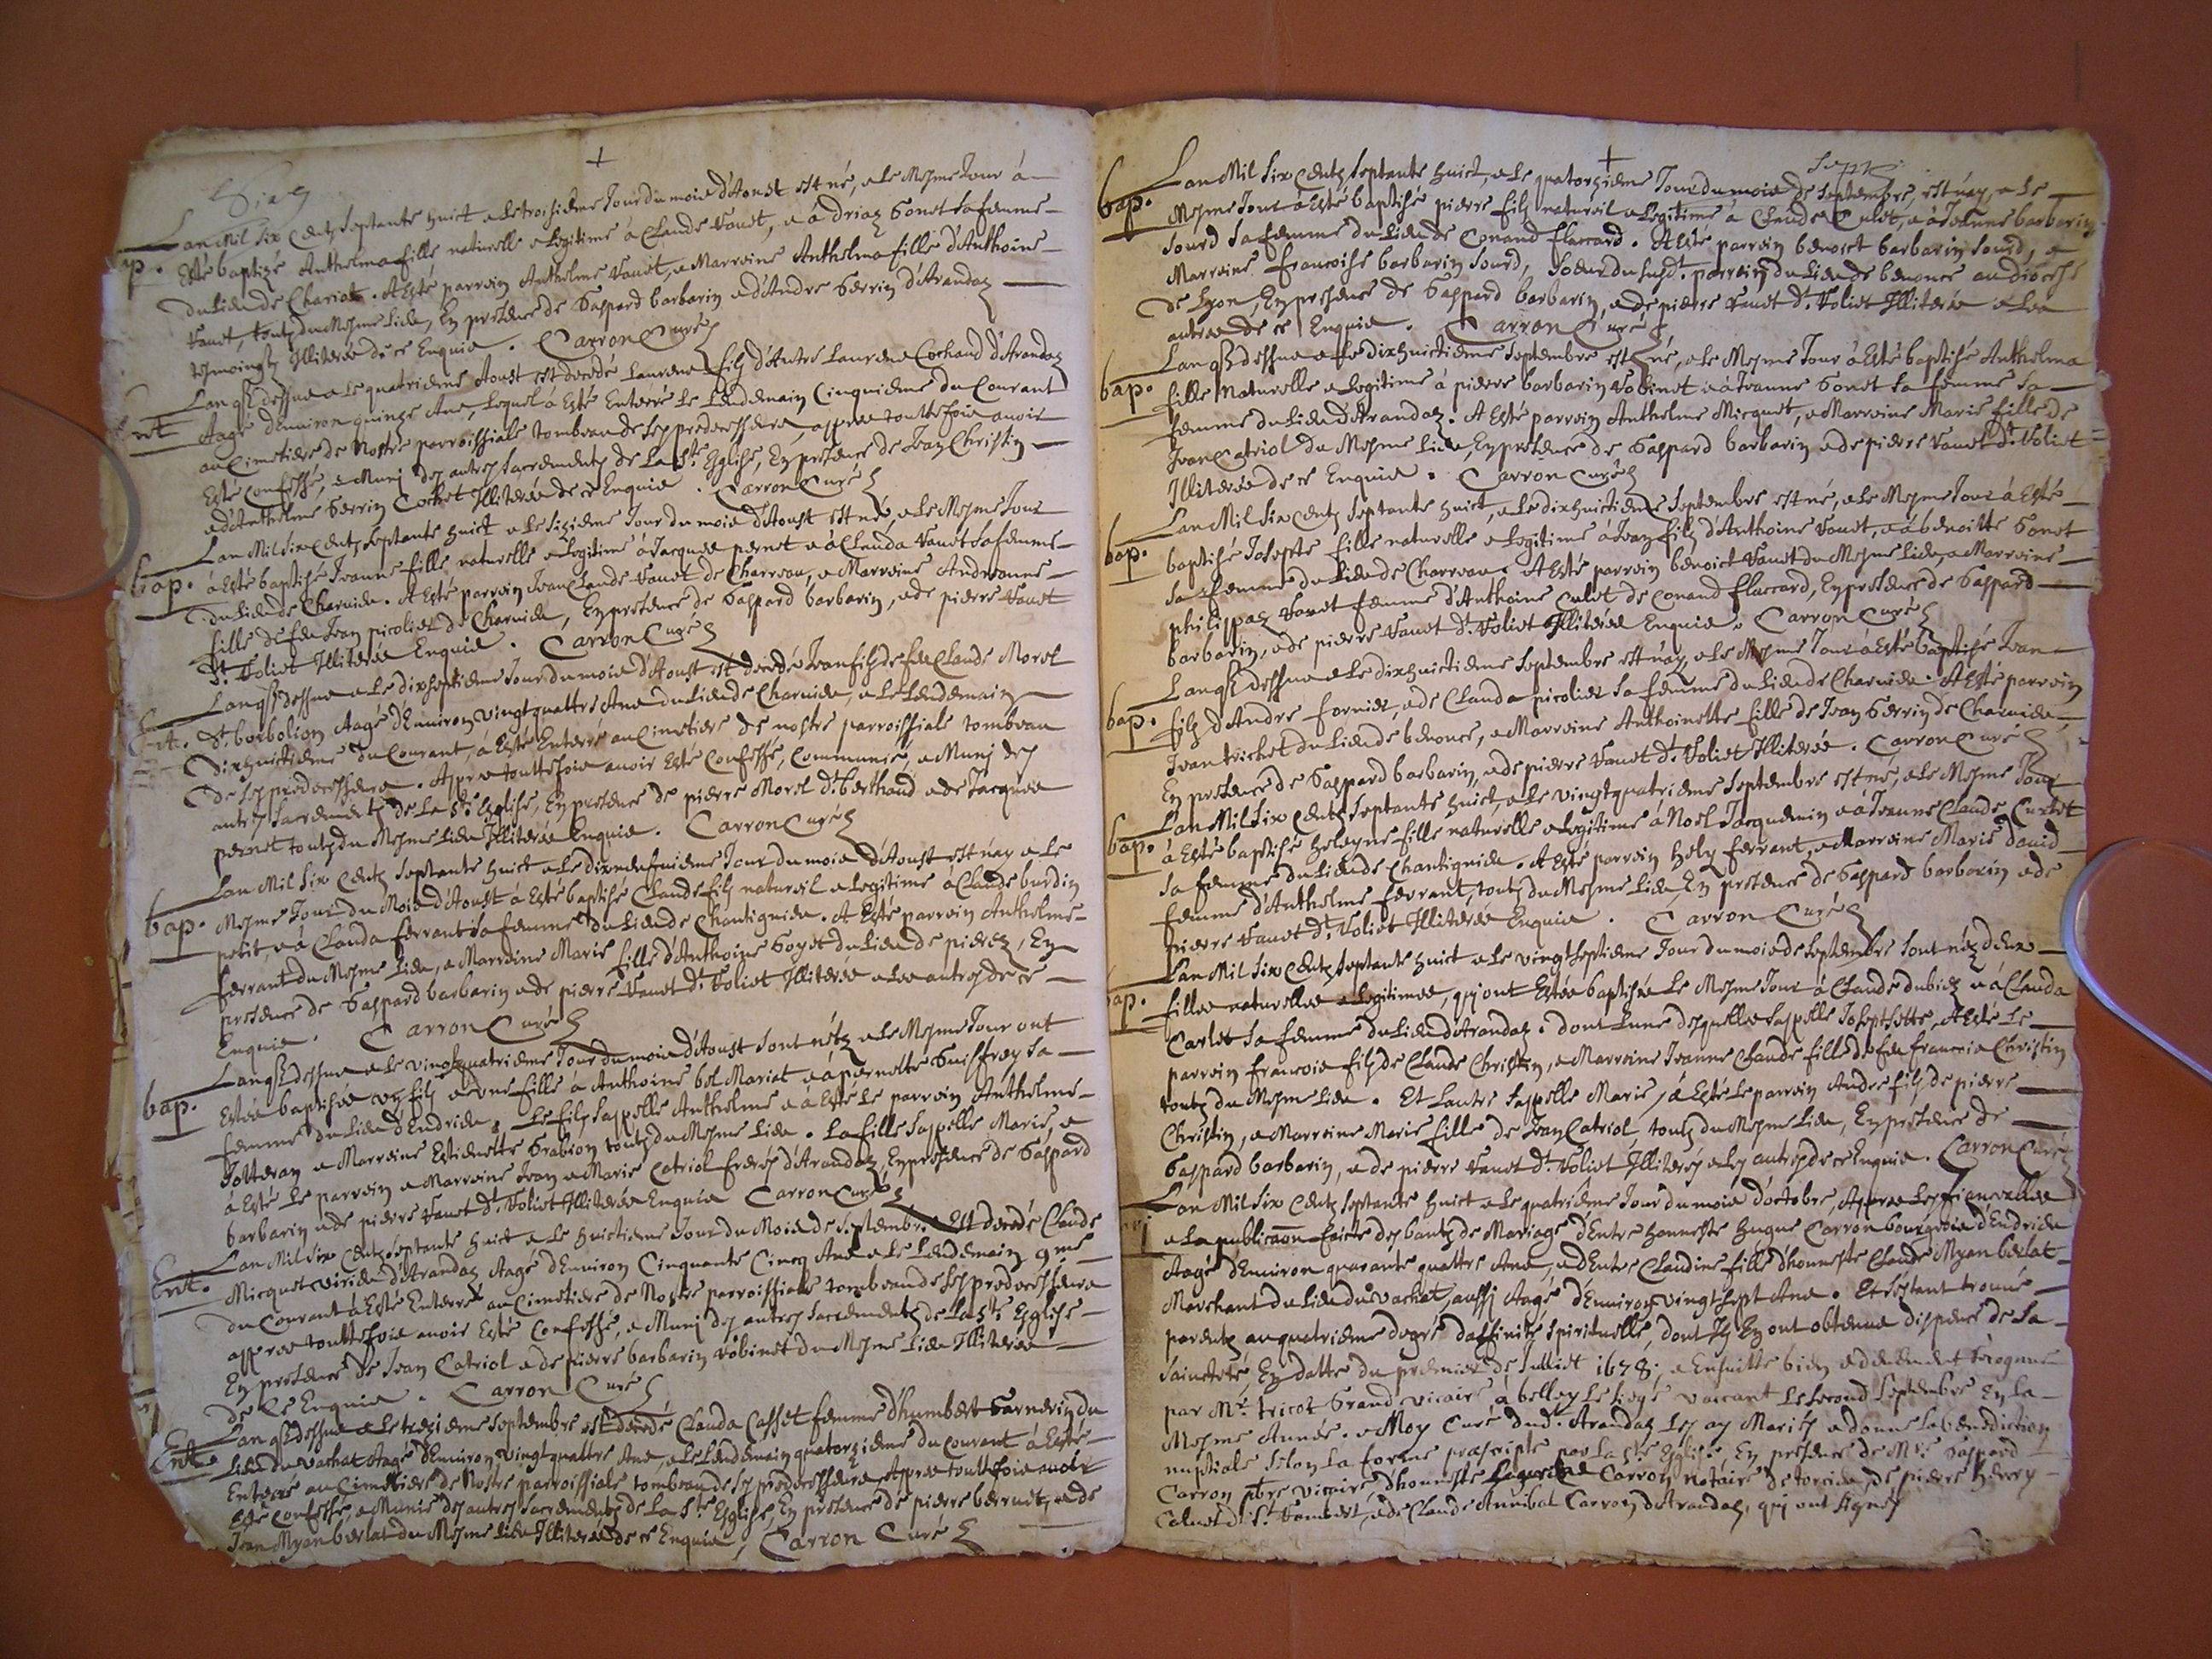 +
Lan Mil Six Centz Septante huict, & Le troisieme Jour du mois d'Aoust est né, & Le Mesme Jour à
ap. Esté baptizé Anthelma fille naturelle & Legitime à Claude Vanet, & à driaz Gonet sa femme
du Lieu de Charioz. A Esté parrein Anthelme Vanet, & Marreine Anthelma fille d'Anthoine
Vanet, toutz du Mesme Lieu, En presence de Gaspard barbarin & d'André Gerrin d'Arandaz
tesmoingtz Illiterés de ce Enquis. Carron Curé
Lan q.s dessus & Le quatrieme Aoust est decedé Laurens filz d'Autre Laurens Cochand d'Arandaz
Ent. Aagé d'Environ quinze Ans, Lequel à Esté Enterré Le Lendemain Cinquieme du Courant
au Cimetiere de Nostre parroissiale tombeau de ses predecesseurs, apres touttesfois avoir
Esté Confessé, & Munj des autres Sacrementz de La S.te Esglise, En presence de Jean Christin
& d'Anthelme Gerrin Cochet Illiterés de ce Enquis. Carron Curé
Lan Mil Six Centz Septante huict & Le sizieme Jour du mois d'Aoust est né, & Le Mesme Jour
bap. à Esté baptisé Jeanne fille naturelle & Legitime à Jacques pernet & à Clauda Vanet sa femme
du Lieu de Charvieu. A Esté parrein Jean Claude Vanet de Charveau, & Marreine Andreanne
fille de feu Jean picolier de Charvieu, En presence de Gaspard barbarin, & de pierre Vanet
d.t Voliet Illiterés Enquis. Carron Curé
Lan q.s dessus & Le dixseptieme Jour du mois d'Aoust est decedé Jean filz de feu Claude Morel
Ent. d.t borbolion Aagé d'Environ vingt quattre Ans du Lieu de Charvieu, & Le Lendemain
dixhuictieme du Courant, à Esté Enterré au Cimetiere de nostre parroissiale tombeau
de ses predecesseurs. Apres touttesfois avoir Esté Confessé, Communié, & Munj des
autres Sacrementz de La S.te Esglise, En presence de pierre Morel d.t berthaud & de Jacques
pernet toutz du Mesme Lieu Illiterés Enquis. Carron Curé
Lan Mil Six Centz Septante huict & Le dixneufvieme Jour du mois d'Aoust est nay & Le
bap. Mesme Jour du Mois d'Aoust à Esté baptisé Claude filz natureil & Legitime à Claude burdin
petit, & à Clauda ferrant sa femme du Lieu de Chantignieu. A Esté parrein Anthelme
ferrant du Mesme Lieu, & Marreine Marie fille d'Anthoine Goyet du Lieu de pierez, En
presence de Gaspard barbarin & de pierre Vanet d.t Voliet Illiterés & Les autres de ce
Enquis. Carron Curé
Lan q.s dessus & Le vingtquatrieme Jour du mois d'Aoust sont nétz & Le Mesme Jour ont
bap. Estés baptisés un filz & une fille à Anthoine bel Mariat & à pernette Guiffrey sa
femme du Lieu d'Endrieu, Le filz sappelle Anthelme & à Esté Le parrein Anthelme
Jotteran & Marreine Estienette Grabion toutz du Mesme Lieu. La fille sappelle Marie, &
à Esté Le parrein & Marreine Jean & Marie Catriol freres d'Arandaz, En presence de Gaspard
barbarin & de pierre Vanet d.t Voliet Illiterés Enquis Carron Curé
Lan Mil Six Centz Septante huict & Le huictieme Jour du Mois de Septembre Est decedé Claude
Ent. Micquet viridu d'Arandaz Aagé d'Environ Cinquante Cincq Ans & Le Lendemain 9.me
du Courant à Esté Enterré au Cimetiere de Nostre parroissiale tombeau de ses predecesseurs
appres touttesfois avoir Esté Confessé, & Munj des autres Sacrementz de La S.te Esglise
En presence de Jean Catriol & de pierre barbarin Vobinet du Mesme Lieu Illiterés
de Ce Enquis. Carron Curé
Lan q.s dessus & Le trezieme Septembre est decedé Clauda Casset femme d'humbert Garnerin du
Ent. Lieu du Vachat Aagé d'Environ vingt quattre Ans, & Le Lendemain quatorzieme du Courant à Esté
Enterré au Cimettiere de Nostre parroissiale tombeau de ses predecesseurs, Apres touttesfois avoir
Esté Confessé, & Munie des autres Sacrementz de La S.te Esglise, En presence de pierre berruet, & de
Jean Myan berlat du Mesme Lieu Illiterés de ce Enquis, Carron Curé
+
Lan Mil Six Centz Septante huict, & Le quatorzieme Jour du mois de Septembre, est nay, & Le
bap. Mesme Jour à Esté baptisé pierre filz natureil & Legitime à Claude Culet, & à Jeanne barbarin
Sourd sa femme du Lieu de Conand flaccard. A Esté parrein benoict barbarin Sourd, &
Marreine francoise barbarin Sourd, Soeur du Susd.t parrein du Lieu de benonce au diocese
de Lyon, En presence de Gaspard barbarin, & de pierre Vanet d.t Voliet Illiterés & Les
autres de ce Enquis. Carron Curé
Lan q.s dessus & Le dixhuictieme Septembre est né, & Le Mesme Jour à Esté baptisé Anthelma
bap. fille Naturelle & Legitime à pierre barbarin Vobinet & à Jeanne Gonet sa femme sa
femme du Lieu d'Arandaz. A Esté parrein Anthelme Micquet, & Marreine Marie fille de
Jean Catriol du Mesme Lieu, En presence de Gaspard barbarin & de pierre Vanet d.t Voliet
Illiterés de ce Enquis. Carron Curé
Lan Mil Six Centz Septante huict, & Le dixhuictieme Septembre est né, & Le Mesme Jour à Esté
bap. baptisé Josepte fille naturelle & Legitime à Jean filz d'Anthoine Vanet, & à benoitte Gonet
sa femme du Lieu de Charveau. A Esté parrein benoict Vanet du Mesme Lieu, & Marreine
philippaz Vanet femme d'Anthoine Culet de Conand flaccard, En presence de Gaspard
barbarin, & de pierre Vanet d.t Voliet Illiterés Enquis. Carron Curé
Lan q.s dessus & Le dixhuictieme Septembre est nay, & Le Mesme Jour à Esté baptisé Jean
bap. filz d'André fornier, & de Clauda picolier sa femme du Lieu de Charvieu. A Esté parrein
Jean trichet du Lieu de benonce, & Marreine Anthoinette fille de Jean Gerrin de Charvieu,
En presence de Gaspard barbarin, & de pierre Vanet d.t Voliet Illiterés. Carron Curé
Lan Mil Six Centz Septante huict, & Le vingtquatrieme Septembre est né, & Le Mesme Jour
bap. à Esté baptisé helayne fille naturelle & Legitime à Noel Jacquemin & à Jeanne Claude Curtet
sa femme du Lieu de Chantignieu. A Esté parrein hely ferrant, & Marreine Marie david
femme d'Anthelme ferrant, toutz du Mesme Lieu, En presence de Gaspard barbarin & de
pierre Vanet d.t Voliet Illiterés Enquis. Carron Curé
Lan Mil Six Centz Septante huict & Le vingt Septieme Jour du mois de Septembre Sont néz deux
ap. filles naturelles & Legitimes, qui ont Estés baptisés Le Mesme Jour à Claude dubiez & à Clauda
Carlet sa femme du Lieu d'Arandaz. dont Lune desquelles sappelle Josephette, A Esté Le
parrein francois filz de Claude Christin, & Marreine Jeanne Claude fille de feu francois Christin
toutz du Mesme Lieu. Et Lautre sappelle Marie, à Esté Le parrein André filz de pierre
Christin, & Marreine Marie fille de Jean Catriol, toutz du Mesme Lieu, En presence de
Gaspard barbarin, & de pierre Vanet d.t Voliet Illiterés & Les autres de ce Enquis. Carron Curé
Lan Mil Six Centz Septante huict & Le quatrieme Jour du mois d'octobre, Apres Les fiancialles
& La publicaõn faicte des bantz de Mariage d'Entre honneste hugue Carron bourgeois d'Endrieu
Aagé d'Environ quarante quattre Ans, & d'Entre Claudine fille d'honneste Claude Myan berlat
Marchant du Lieu du Vachat, aussi Aagé d'Environ vingt sept Ans. Et s'estant trouvé
parentz au quatrieme degré d'affinité Spirituelle, dont Ilz En ont obtenue dispence de Sa
Saincteté, En datte du premier de Julliet 1678, & Ensuitte bien & deuement
par M.r tricot Grand vicaire à belley Le siege vaccant Le second Septembre En La
Mesme Année. & Moy Curé dud. Arandaz Les ay Mariés & donné La benediction
nuptiale selon La forme prescripte par La S.te Esglise, En presence de M.re Gaspard
Carron p̃bre vicaire, d'honneste Carron notaire de torcieu, de pierre hervy
Culuet d. S.t Rambert, & de Claude Annibal Carron d'Arandaz, qui ont signés